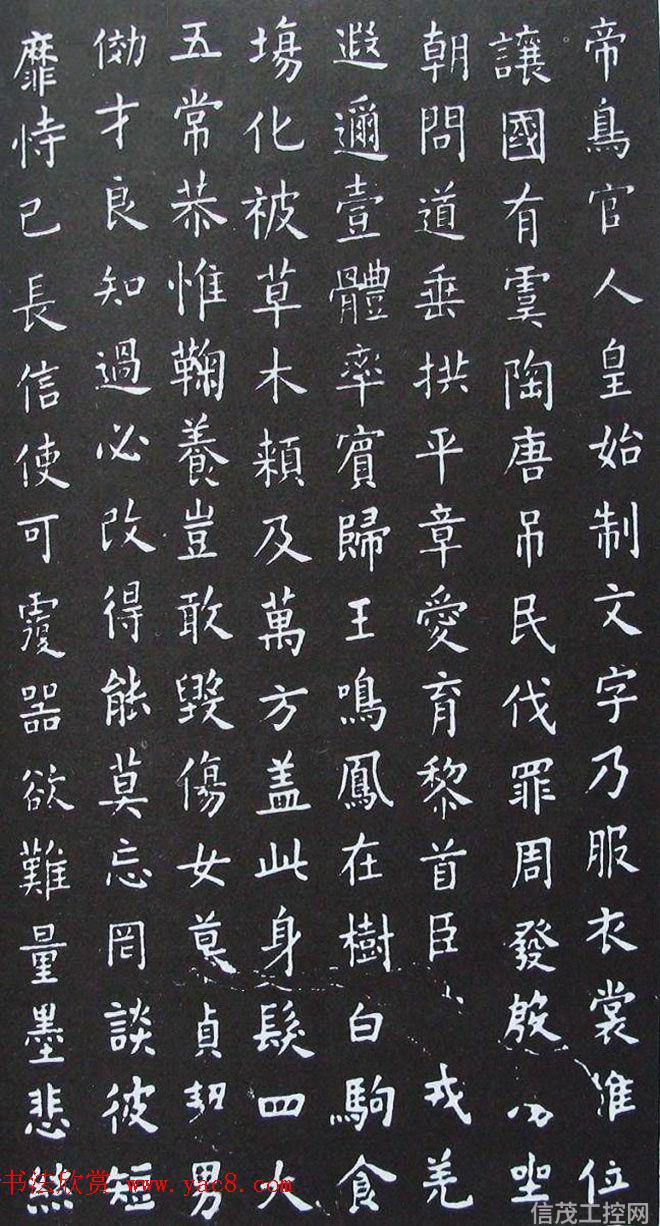 帝鳥官人皇始制文字乃服衣裳推位
讓國有虞陶唐吊民伐罪周發殷坐
朝問道垂拱平章愛育黎首臣戎羌
遐邇壹體率賓歸王鳴鳳在樹白駒食
場化被草木賴及萬方盖此身髮四大
五常恭惟鞠養豈敢毀傷女慕貞男
効才良知過必改得能莫忘罔談彼短
靡恃己長信使可覆器欲難量墨悲
书法欣赏 www.yac8.com
信茂工控网